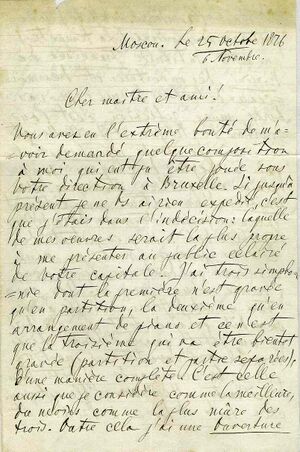 Moscou. Le 25 Octobre 1876
6 Novembre.
Cher maître et ami!
Vous avez eu l'extrême bonté de m'a-
voir demandé quelque composition
à moi, qui eut pu être jouée sous
votre direction à Bruxelle. Si jusqu'à
présent je ne Vs ai rien expedié, c'est
que j'étais dans l'indécision: laquelle
de mes oeuvres serait la plus propre
à me présenter au public éclairé
de votre capitale. J'ai trois sympho-
=nie dont la première n'est gravée
qu'en partition, la deuxième qu'en
arrangement de piano et ce n'est
que la troisième qui va être bientôt
gravée (partition et partie separées),
d'une manière complète. C'est celle
aussi que je considère comme la meilleure,
du moins comme la plus mûre des
trois. Outre cela j'ai une Ouverture